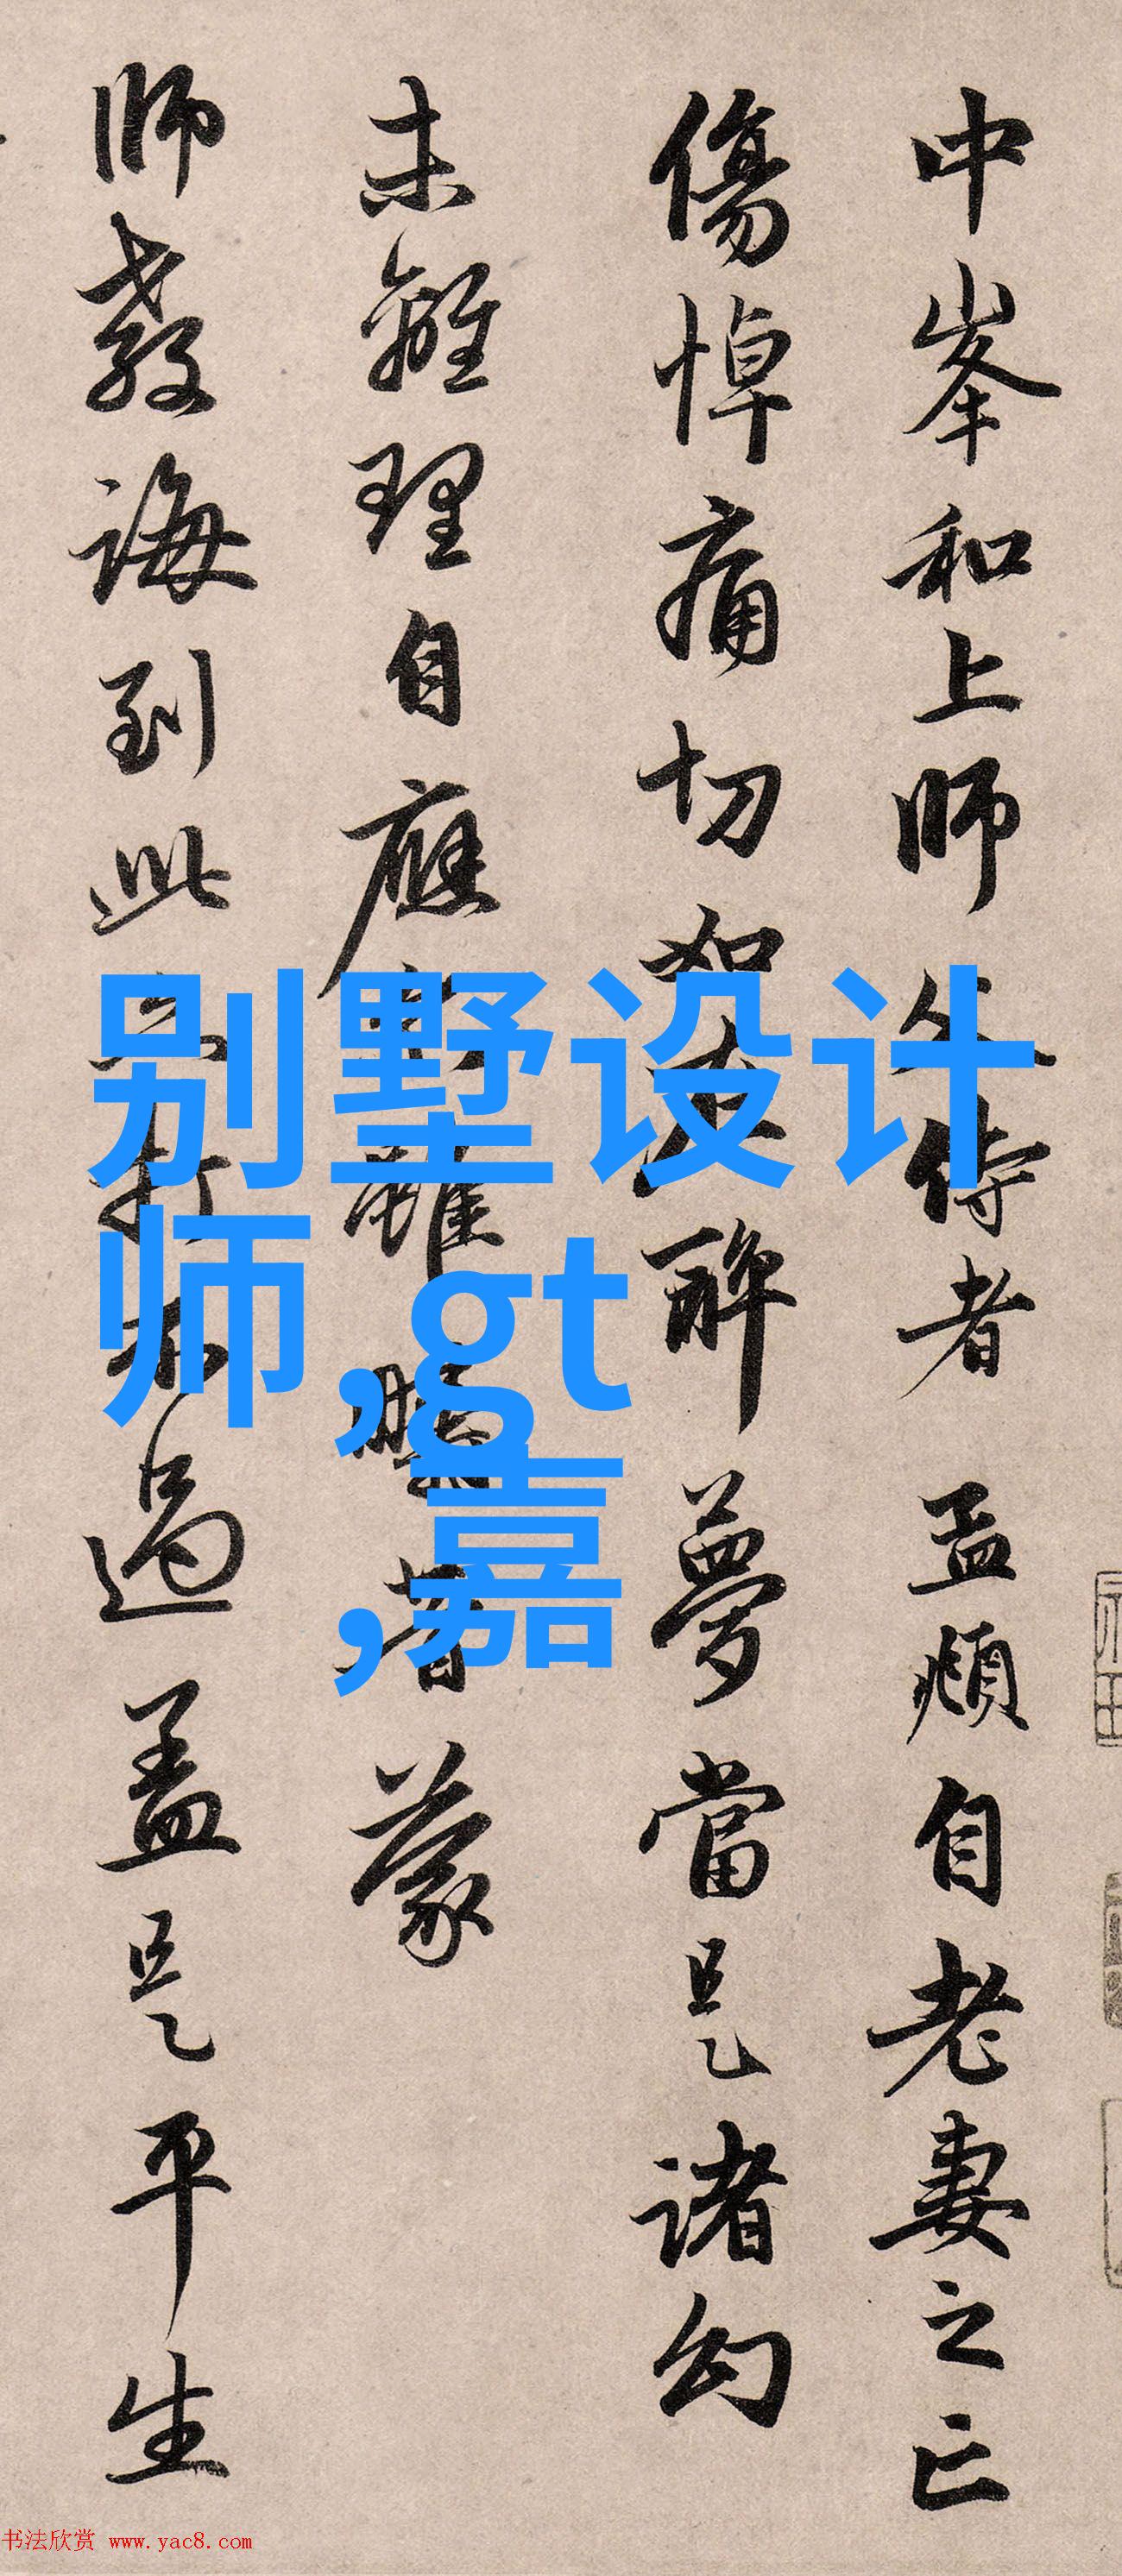 中峯和上師父侍者 孟頫自老妻之亡
傷悼痛切如在醉夢當是諸幻
未離理自應雖昔蒙
師教誨到此亦打不過蓋是平生
别墅设计
师,gt
,嘉
书法欣赏 www.yac8.com